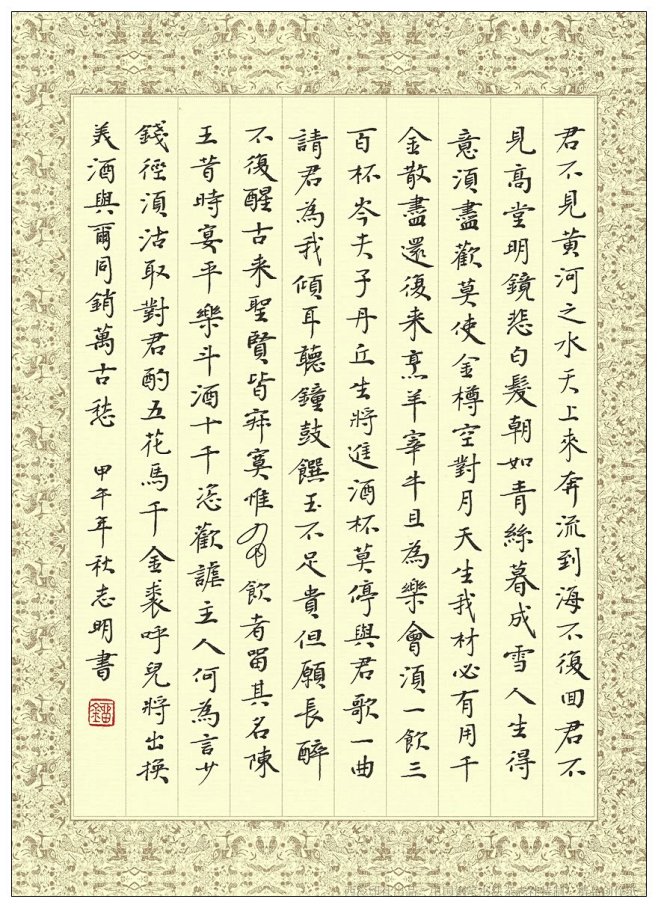 君不見黄河之水天上來奔流到海不復回君不
見高堂明鏡悲白髮朝如青絲暮成雪人生得
意須盡歡莫使金樽空對月天生我材必有用千
金散盡還復来烹羊宰牛且為樂會須一飲三
百杯岑夫子丹丘生將進酒杯莫停與君歌一曲
請君為我傾耳聽鐘鼓饌玉不足貴但願長醉
不復醒古来聖賢皆寂寞惟有飲者留其名陳
王昔時宴平樂斗酒十千恣歡謔主人何為言少
錢徑須沽取對君酌五花馬千金裘呼兒將出換
美酒與爾同銷萬古愁 甲午年秋志明書